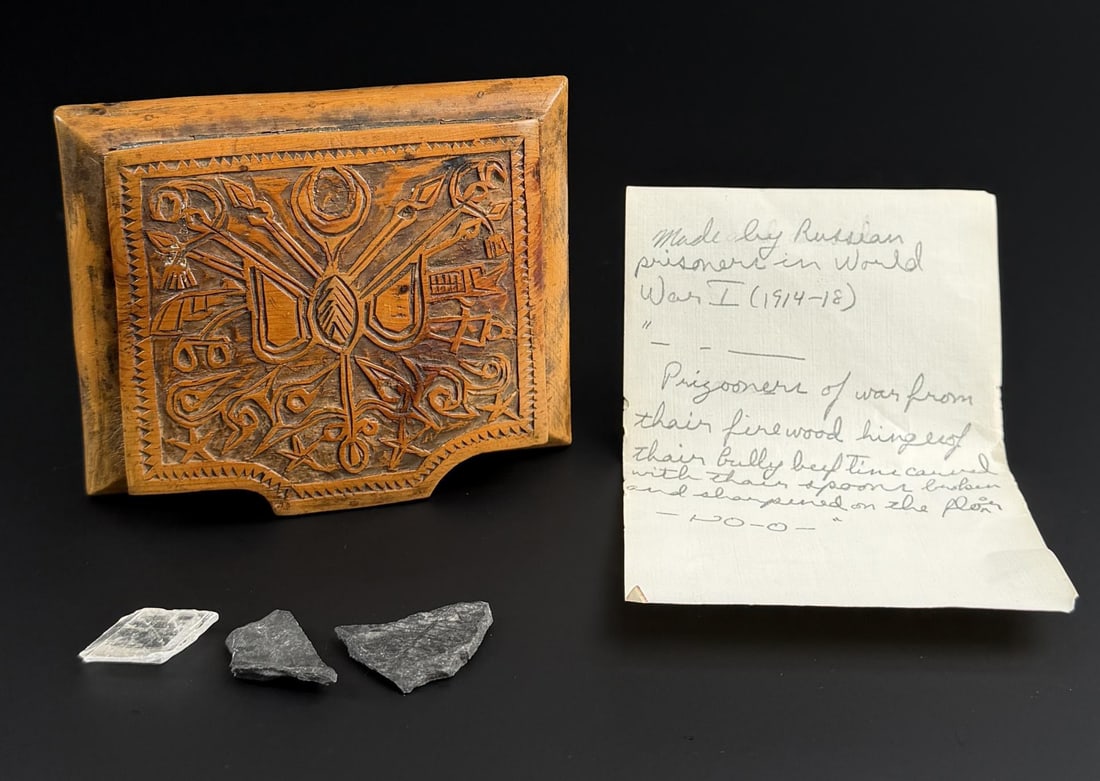 Made by Russian
prisoners in World
War I (1914-18)
"
— - —
Prizooners of war from
thair fire wood hinges of
thair bully beef tins carved
with thair spoons broken
and sharpened on the floor